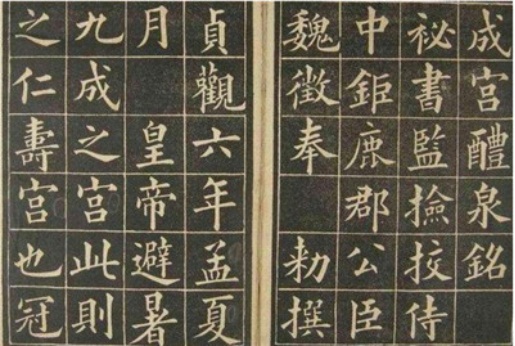 成宮醴泉銘
祕書監撿挍侍
中鉅鹿郡公臣
魏徵奉勑撰
貞觀六年孟夏
月皇帝避暑
九成之宮此則
之仁壽宮也冠